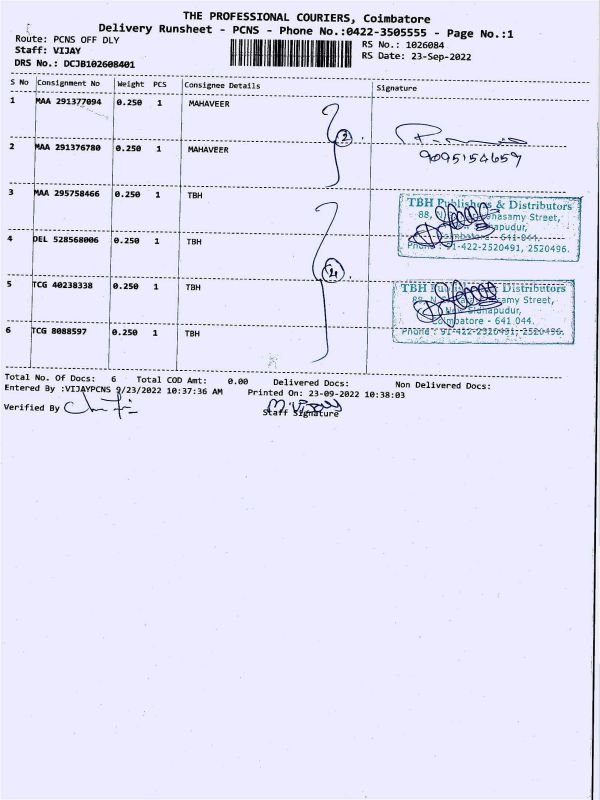 THE PROFESSIONAL COURIERS, Coimbatore
Delivery Runsheet - PCNS - Phone No.:0422-3505555 - Page No.:1
Route: PCNS OFF DLY
RS No.: 1026084
Staff: VIJAY
RS Date: 23-Sep-2022
DRS No.: DCJB102608401
S No Consignment No Weight PCS Consignee Details Signature
1 MAA 291377094 0.250 1 MAHAVEER
2
2 MAA 291376780 0.250 1 MAHAVEER
9095154657
3 MAA 295758466 0.250 1 TBH
TBH Publishers & Distributors
88, Street,
4 DEL 528568006 0.250 1 TBH
Coimbatore - 641 044.
Phone : 91-422-2520491, 2520496.
4
5 TCG 40238338 0.250 1 TBH
TBH Distributors
88, Street,
Coimbatore - 641 044.
6 TCG 8088597 0.250 1 TBH
Phone : 91-422-2520491, 2520496.
Total No. Of Docs: 6 Total COD Amt: 0.00 Delivered Docs: Non Delivered Docs:
Entered By :VIJAYPCNS 9/23/2022 10:37:36 AM Printed On: 23-09-2022 10:38:03
Verified By
M. Vijay
Staff Signature